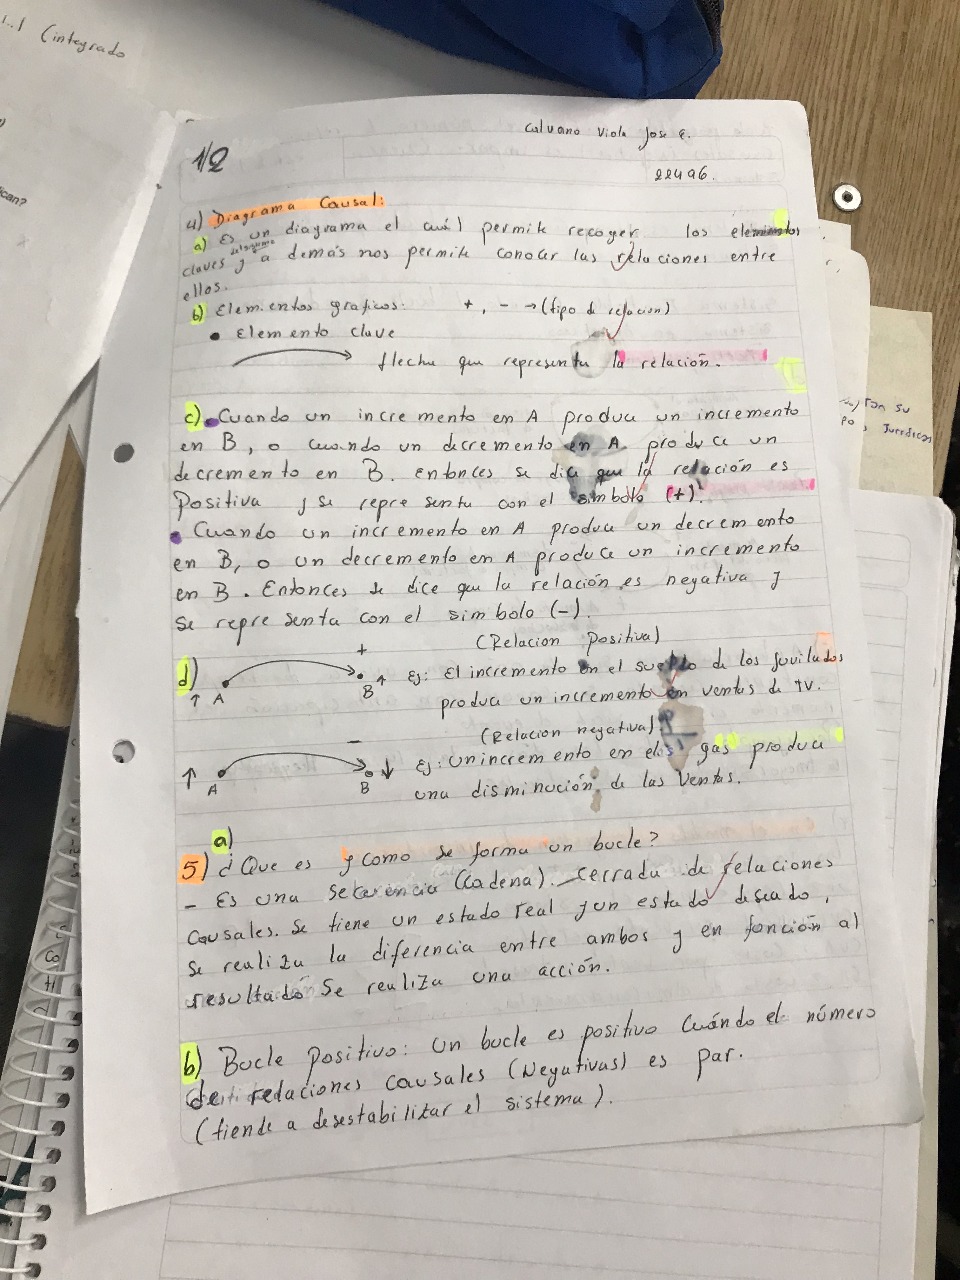 1.1 (integrado
ican?
Calvano Viola Jose E.
1/2
22496.
4) Diagrama Causal:
a) Es un diagrama el cuál permite recoger los elementos
claves y a demás nos permite conocer las relaciones entre
ellos.
b) Elementos graficos: +, - → (tipo d relación)
• Elemento clave
flecha que representa la relación.
c) • Cuando un incremento en A produce un incremento
en B, o cuando un decremento en A produce un
decremento en B. Entonces se dice que la relación es
Positiva y se representa con el simbolo (+).
• Cuando un incremento en A produce un decremento
en B, o un decremento en A produce un incremento
en B. Entonces se dice que la relación es negativa y
se representa con el simbolo (-)
(Relacion Positiva)
d) ↑ A + B ↑ Ej: El incremento en el sueldo de los juvilados
produce un incremento en ventas de tv.
(Relacion negativa)
↑ A - B ↓ Ej: Un incremento en el gas produce
una disminución de las ventas.
a)
5) ¿Que es y como se forma un bucle?
- Es una secuencia (Cadena). cerrada de relaciones
causales. se tiene un estado real y un estado deseado,
se realiza la diferencia entre ambos y en función al
resultado se realiza una acción.
b) Bucle positivo: Un bucle es positivo Cuándo el número
de relaciones causales (Negativas) es par.
(tiende a desestabilizar el sistema).
su
Juridicas